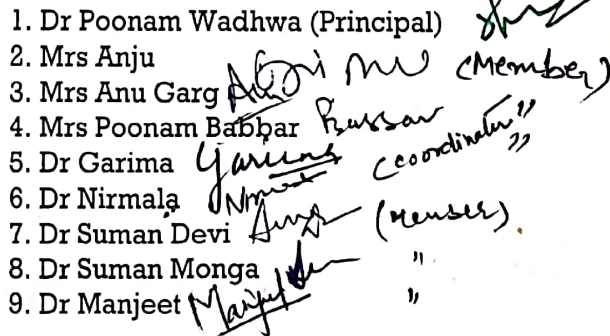 1. Dr Poonam Wadhwa (Principal)
2. Mrs Anju (Member)
3. Mrs Anu Garg
4. Mrs Poonam Babbar "
5. Dr Garima Garima (Coordinator) "
6. Dr Nirmala
7. Dr Suman Devi (Member)
8. Dr Suman Monga "
9. Dr Manjeet Manjeet "